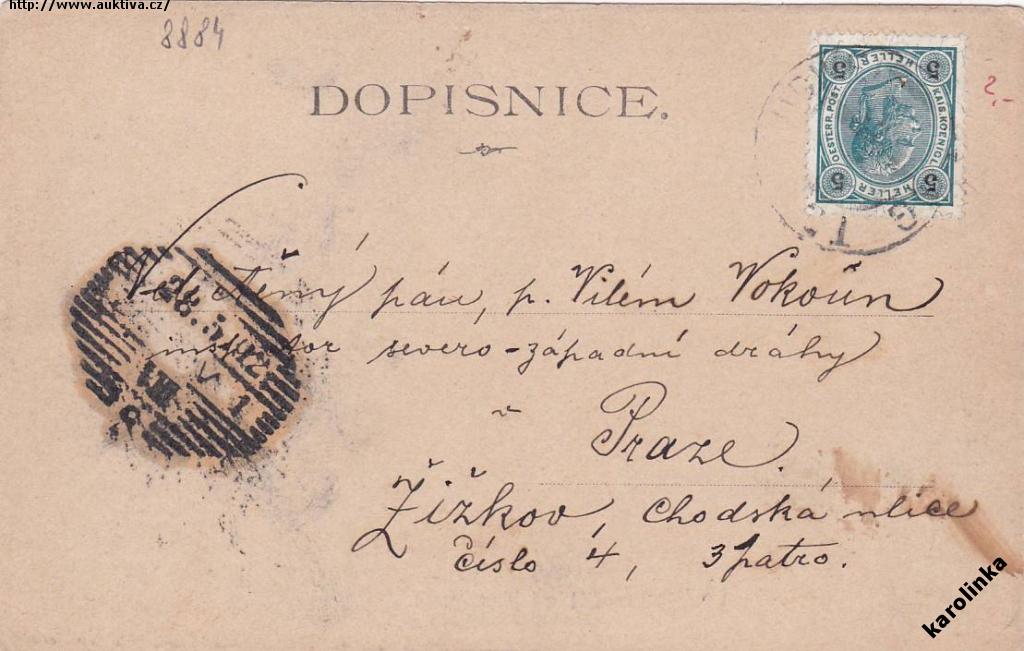 http://www.auktiva.cz/
8884
2,-
DOPISNICE.
5 HELLER 5
OESTERR. POST. KAIS. KOENIGL.
5 HELLER 5
Veletěný pán, p. Vilém Vokoun
inspektor severo-západní dráhy
v Praze.
Žižkov, Chodská ulice
číslo 4, 3 patro.
28.5.02
karolinka